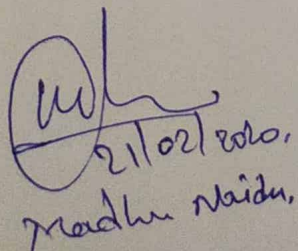 21/02/2020,
Madhu Naidu,